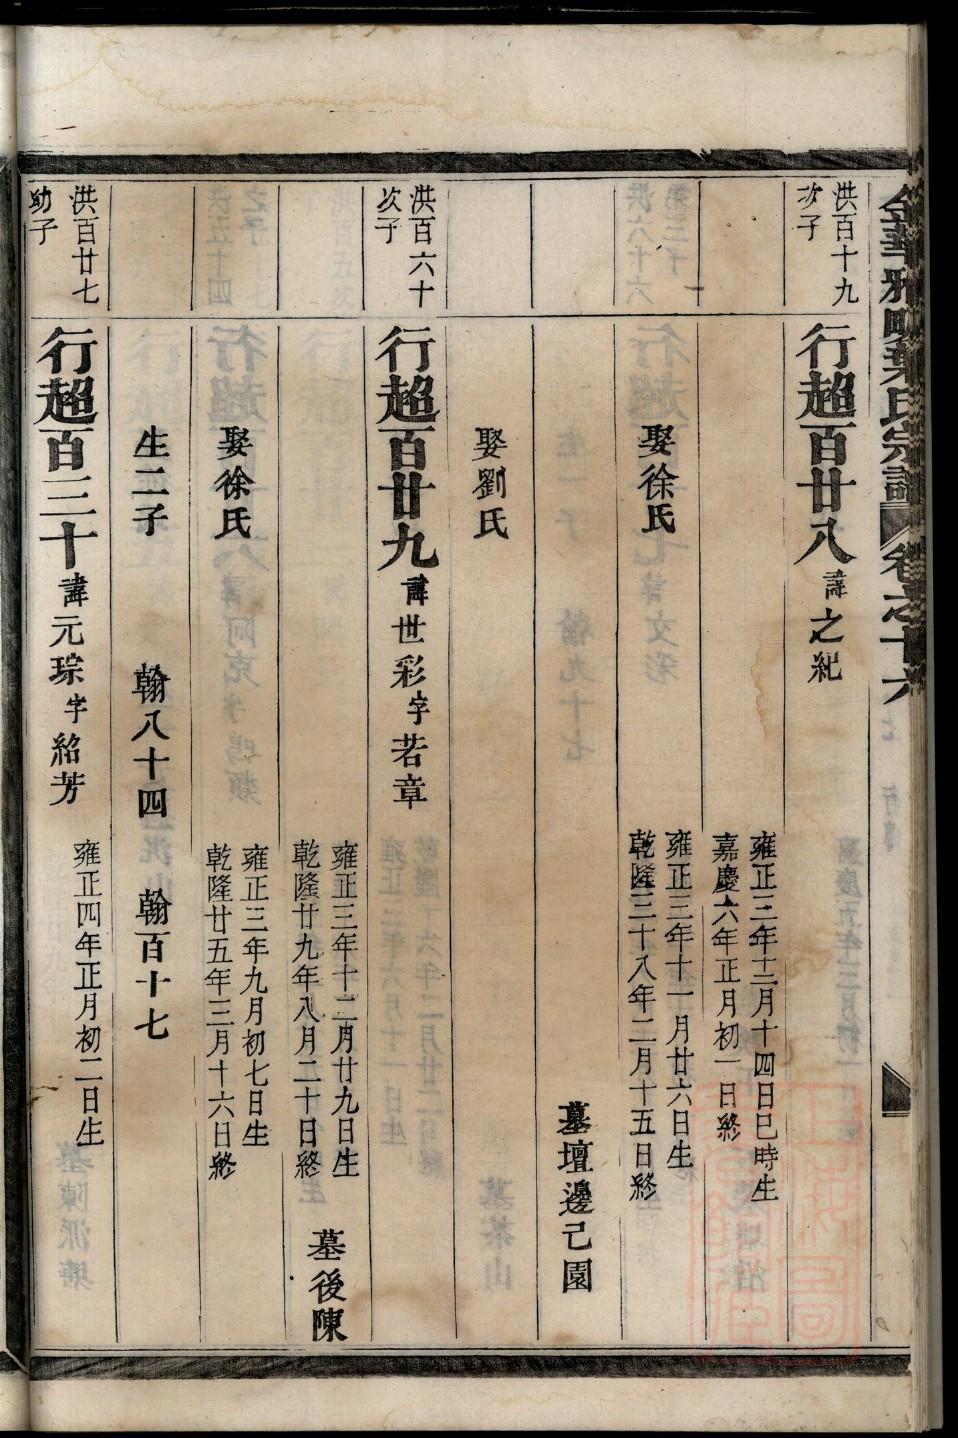 金華雅畈葉氏宗譜 卷之十六
洪百十九
次子
行超百廿八 諱之紀
雍正三年十二月十四日巳時生
嘉慶六年正月初一日終
娶徐氏
雍正三年十一月廿六日生
乾隆三十八年二月十五日終
墓壇邊己園
娶劉氏
洪百六十
次子
行超百廿九 諱世彩字若章
雍正三年十二月廿九日生
乾隆廿九年八月二十日終
墓後陳
娶徐氏
雍正三年九月初七日生
乾隆廿五年三月十六日終
生二子 翰八十四 翰百十七
洪百廿七
幼子
行超百三十 諱元琮字紹芳
雍正四年正月初二日生